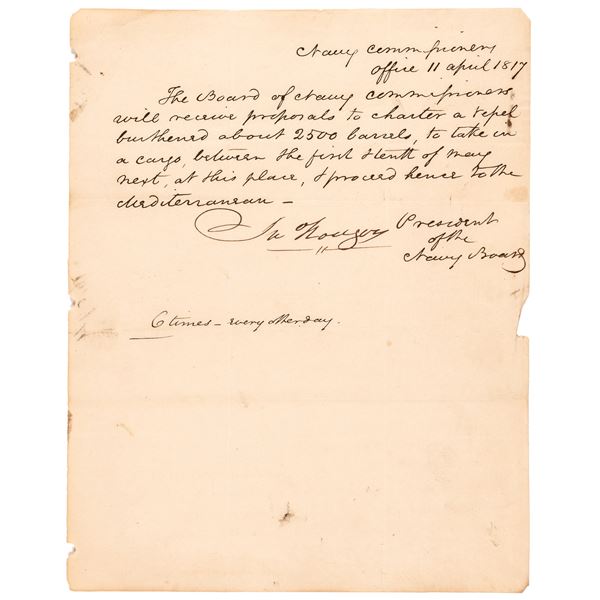 Navy Commissioners
office 11 april 1817
The Board of Navy Commissioners
will receive proposals to charter a vessel
burthened about 2500 barrels, to take in
a cargo, between the first & tenth of may
next, at this place, & proceed hence to the
Mediterranean —
Jn Rodgers President
of the
Navy Board
6 times — every other day.